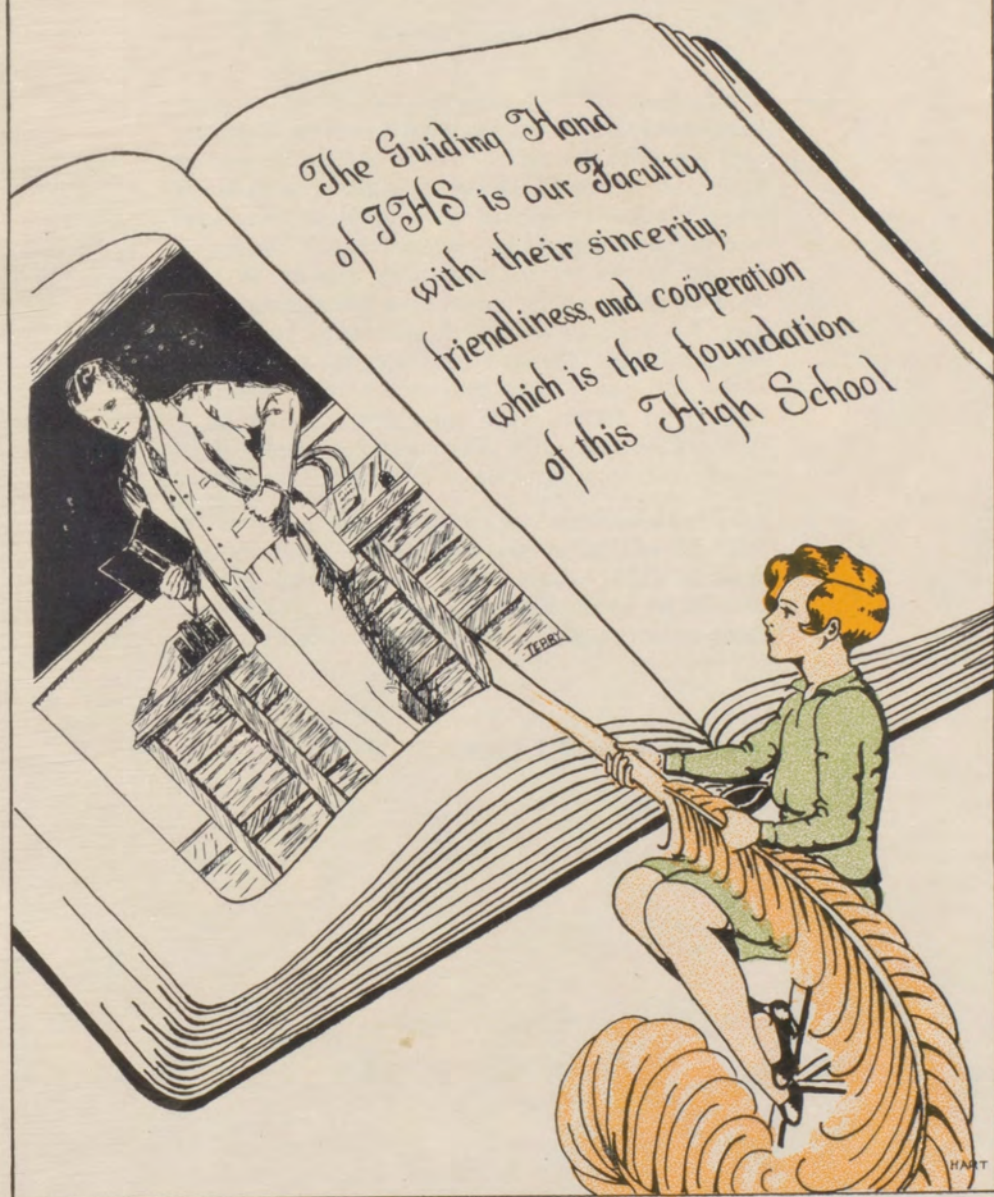 The Guiding Hand
of IHS is our Faculty
with their sincerity,
friendliness, and coöperation
which is the foundation
of this High School
TERRY
HART